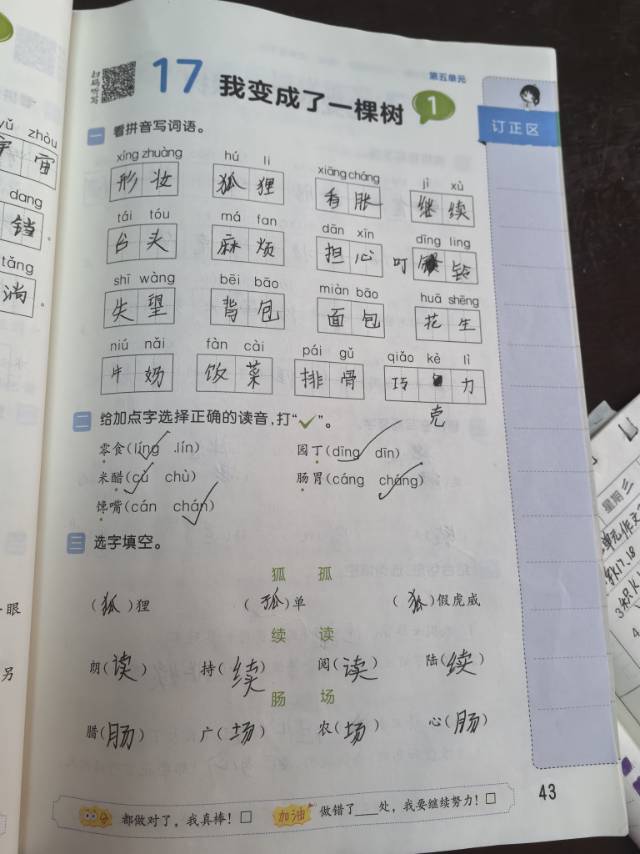 yǔ zhòu
宇 宙
dang
铛
tǎng
淌
眼
另
扫码听写
17 我变成了一棵树 1
第五单元
订正区
一 看拼音写词语。
xíng zhuàng hú li xiāng cháng jì xù
形 妆 狐 狸 香 胀 继 续
tái tóu má fan dān xīn dīng ling
台 夫 麻 烦 担 心 叮 铃
shī wàng bēi bāo miàn bāo huā shēng
失 望 背 包 面 包 花 生
niú nǎi fàn cài pái gǔ qiǎo kè lì
牛 奶 饭 菜 排 骨 巧 力
克
二 给加点字选择正确的读音,打“✓”。
零食(líng lín) 园丁(dīng dīn)
米醋(cù chù) 肠胃(cáng cháng)
馋嘴(cán chán)
三 选字填空。
狐 孤
(狐)狸 (孤)单 (狐)假虎威
续 读
朗(读) 持(续) 阅(读) 陆(续)
肠 场
腊(肠) 广(场) 农(场) 心(肠)
都做对了,我真棒!□ 加油 做错了___处,我要继续努力!□
43
星期三